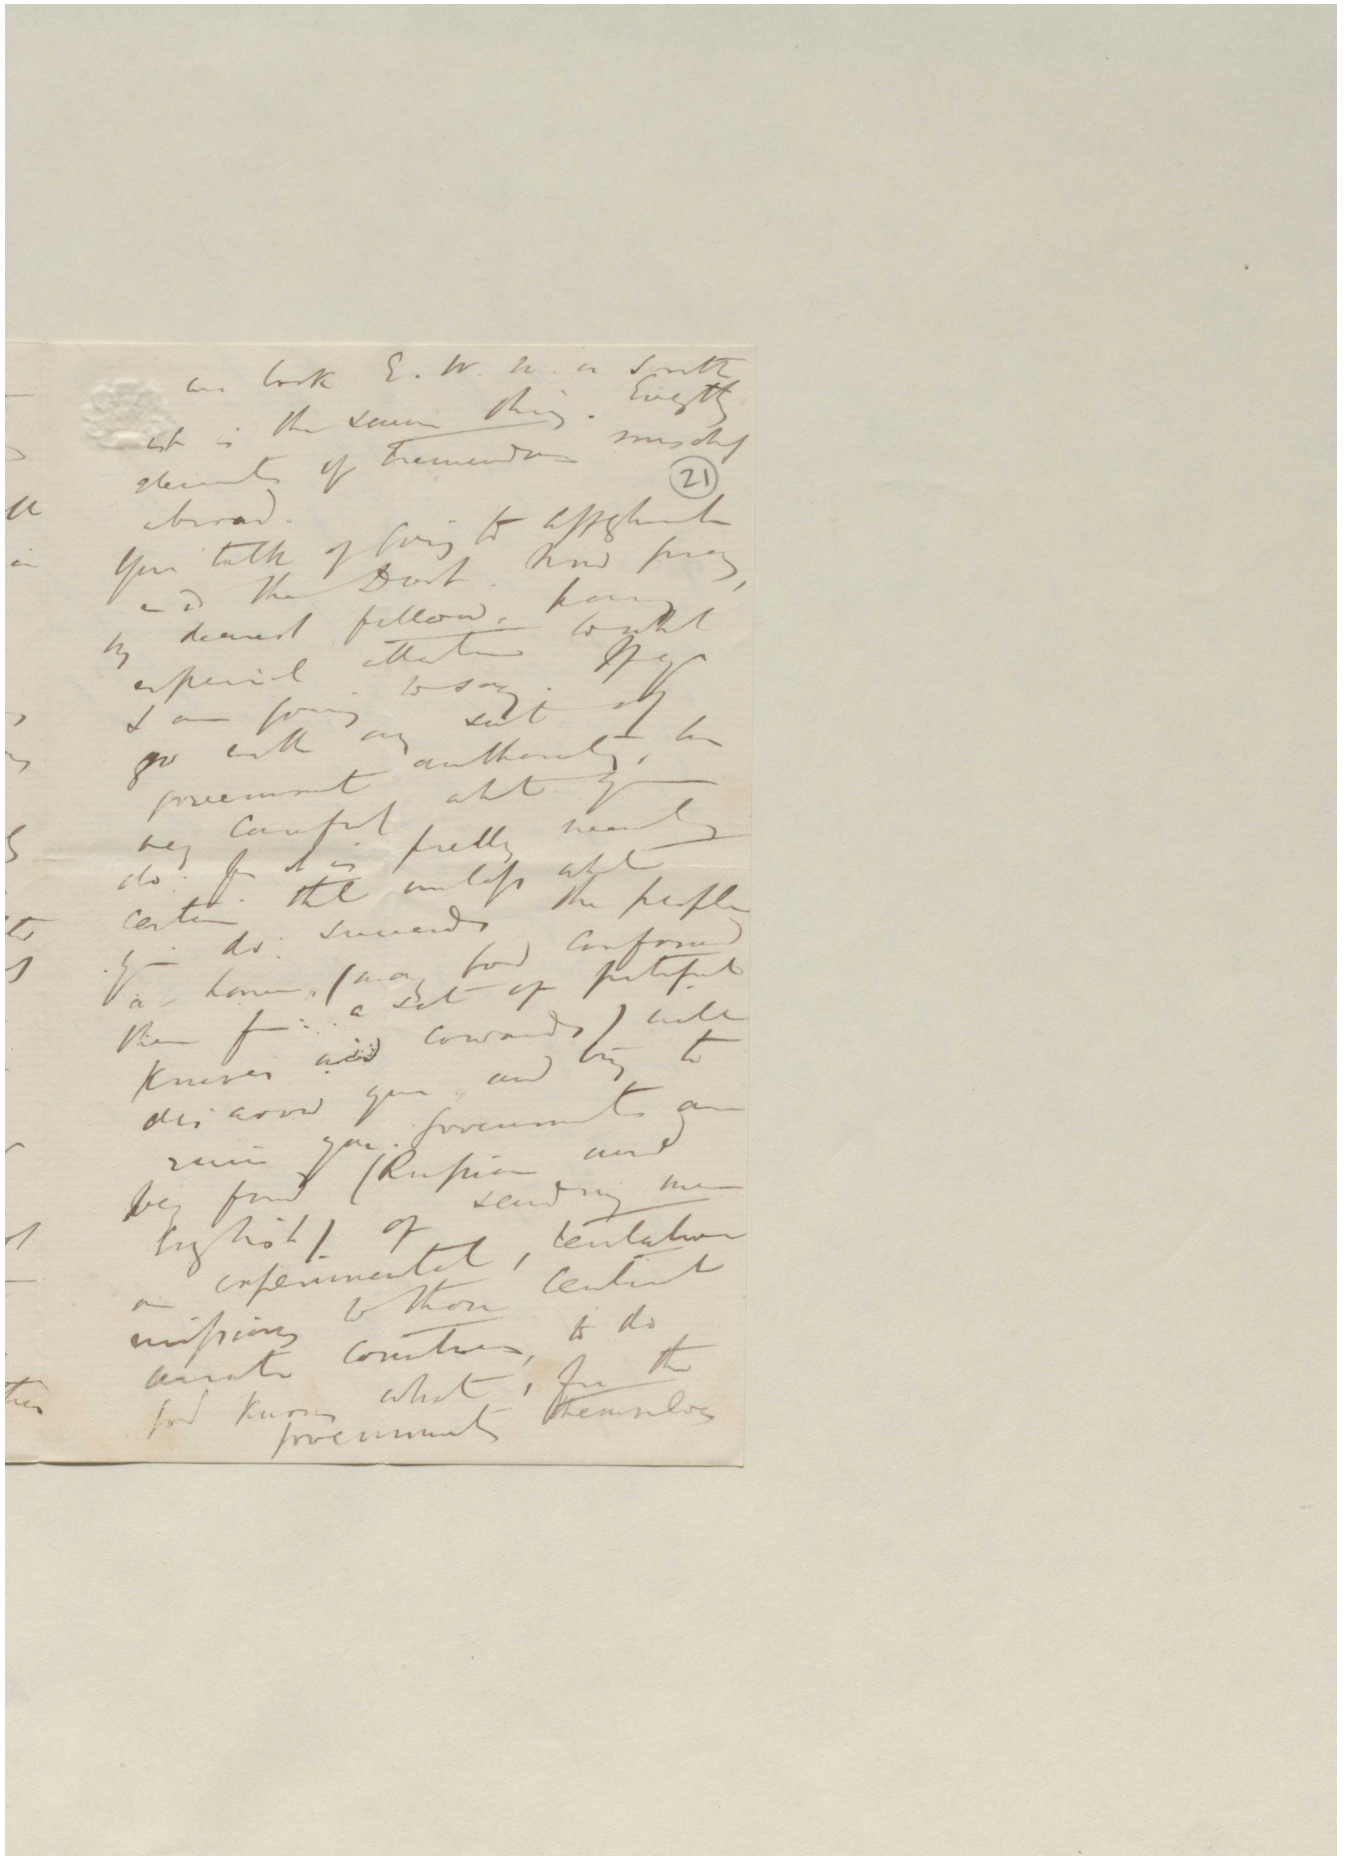 we look E. W. N. or South
it is the same thing. Everythg
elements of tremendous mischief
21
abroad.
You talk of going to Affghanistan
and the East. Now pray,
my dearest fellow, pay
especial attention to what
I am going to say. If you
go with any sort of
government authority, be
very careful what you
do: for it is pretty nearly
certain that unless what
you do: succeeds the people
at home, (may God confound
them for a set of pitiful
knaves and cowards) will
disavow you and try to
ruin you. Governments are
very fond (Russian and
English) of sending men
on experimental, tentative
missions to those central
asiatic countries, to do
God knows what, for the
governments themselves